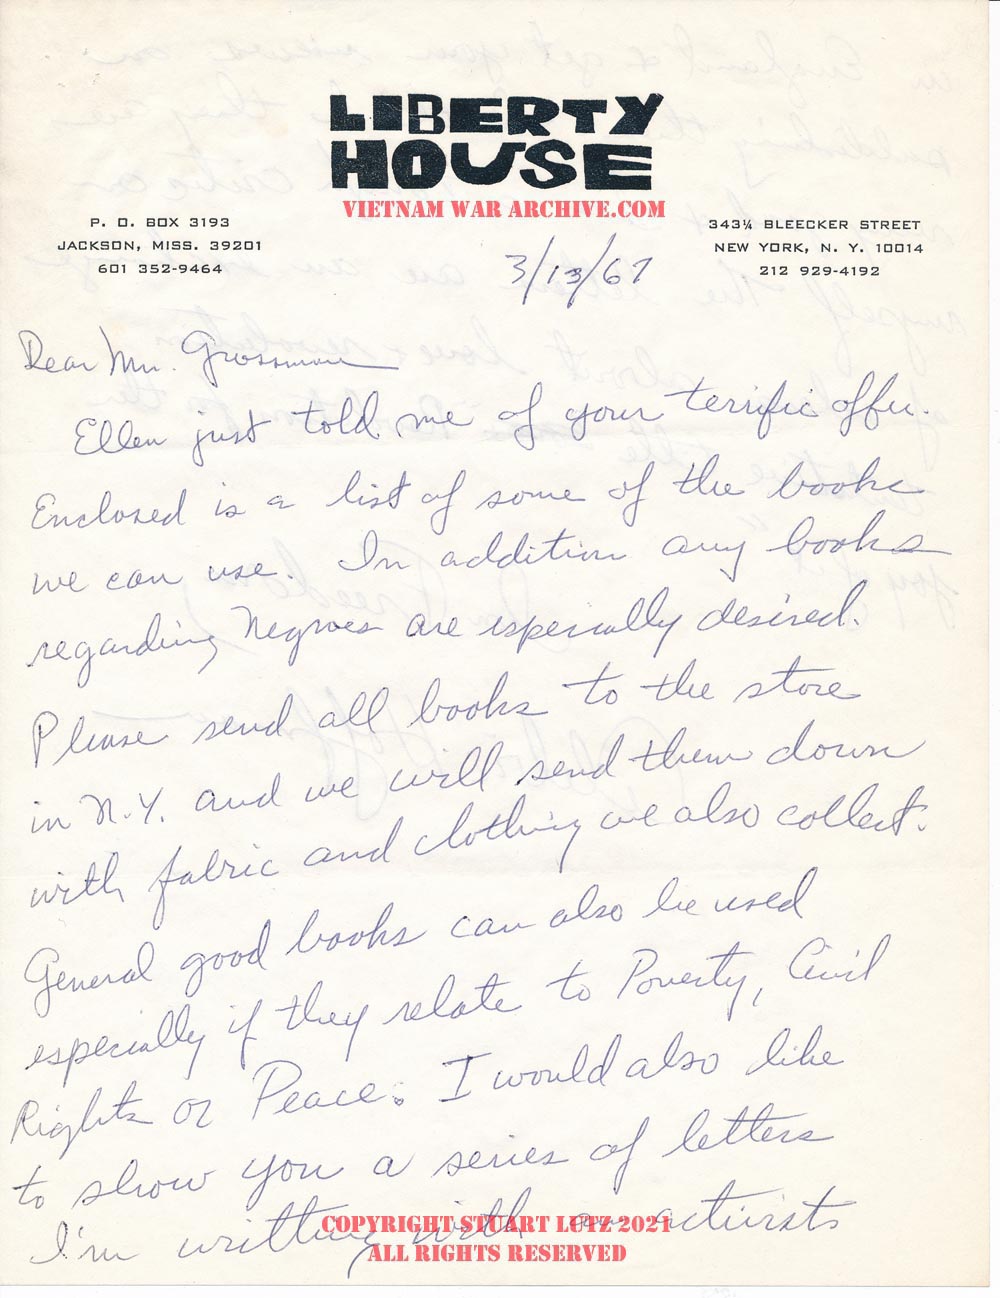 LIBERTY
HOUSE
VIETNAM WAR ARCHIVE.COM
P. O. BOX 3193
JACKSON, MISS. 39201
601 352-9464
343¼ BLEECKER STREET
NEW YORK, N. Y. 10014
212 929-4192
3/13/67
Dear Mr. Grossman
Ellen just told me of your terrific offer.
Enclosed is a list of some of the books
we can use. In addition any books
regarding Negroes are especially desired.
Please send all books to the store
in N.Y. and we will send them down
with fabric and clothing we also collect.
General good books can also be used
especially if they relate to Poverty, Civil
Rights or Peace. I would also like
to show you a series of letters
I'm writting with an activists
COPYRIGHT STUART LUTZ 2021
ALL RIGHTS RESERVED